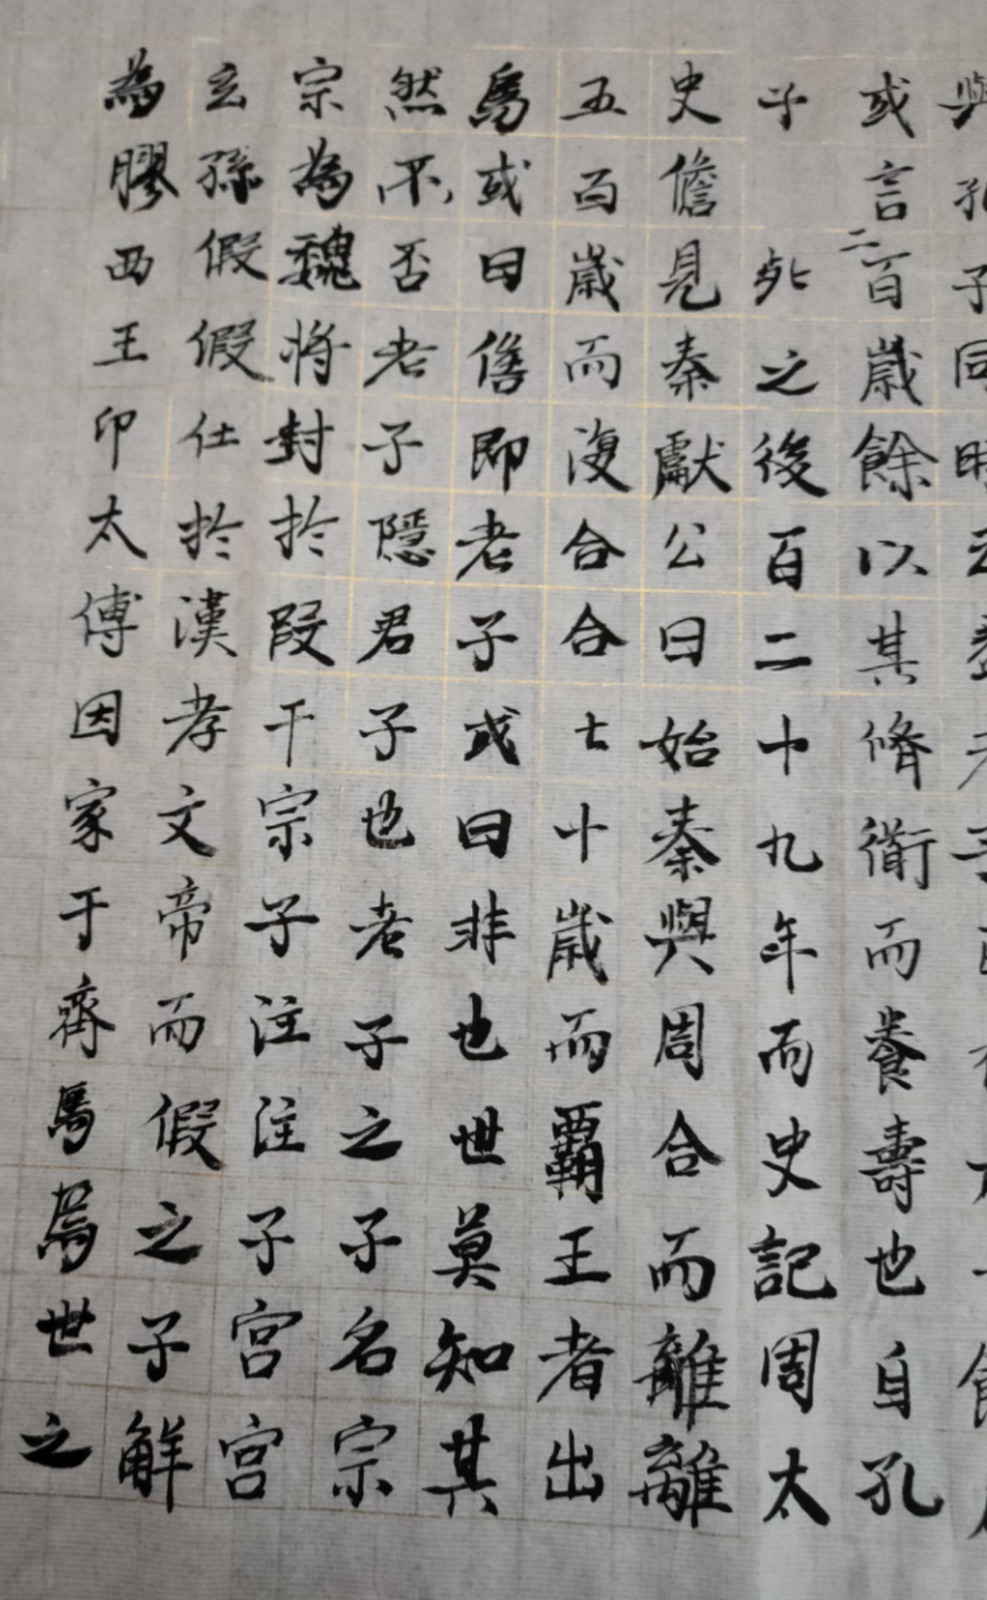 與孔子同時云
或言二百歲餘以其脩衜而養壽也自孔
子死之後百二十九年而史記周太
史儋見秦獻公曰始秦與周合而離離
五百歲而復合合七十歲而霸王者出
焉或曰儋即老子或曰非也世莫知其
然不否老子隱君子也老子之子名宗
宗為魏將封於段干宗子注注子宮宮
玄孫假假仕於漢孝文帝而假之子解
為膠西王卬太傅因家于齊焉焉世之